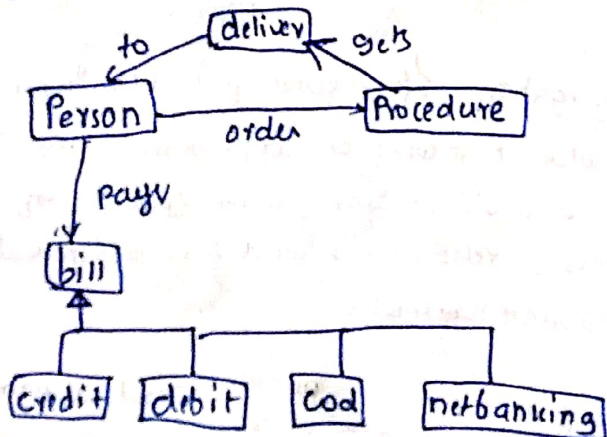 deliver
to
gets
Person
order
Procedure
pays
bill
credit
debit
cod
netbanking